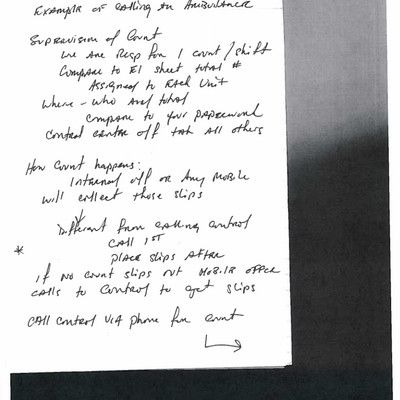 Example of calling an Ambulance
Supervision of Count
We are Resp for 1 count/shift
Compare to E1 sheet total #
Assigned to Each Unit
Where - Who and total
compare to your paperwork
Control centre off tak all others
How Count happens:
Internal off or Any Mobile
will collect those slips
Different from calling control
* Call 1st
place slips after
if no count slips out Mobile officer
calls to Control to get slips
Call control via phone for count